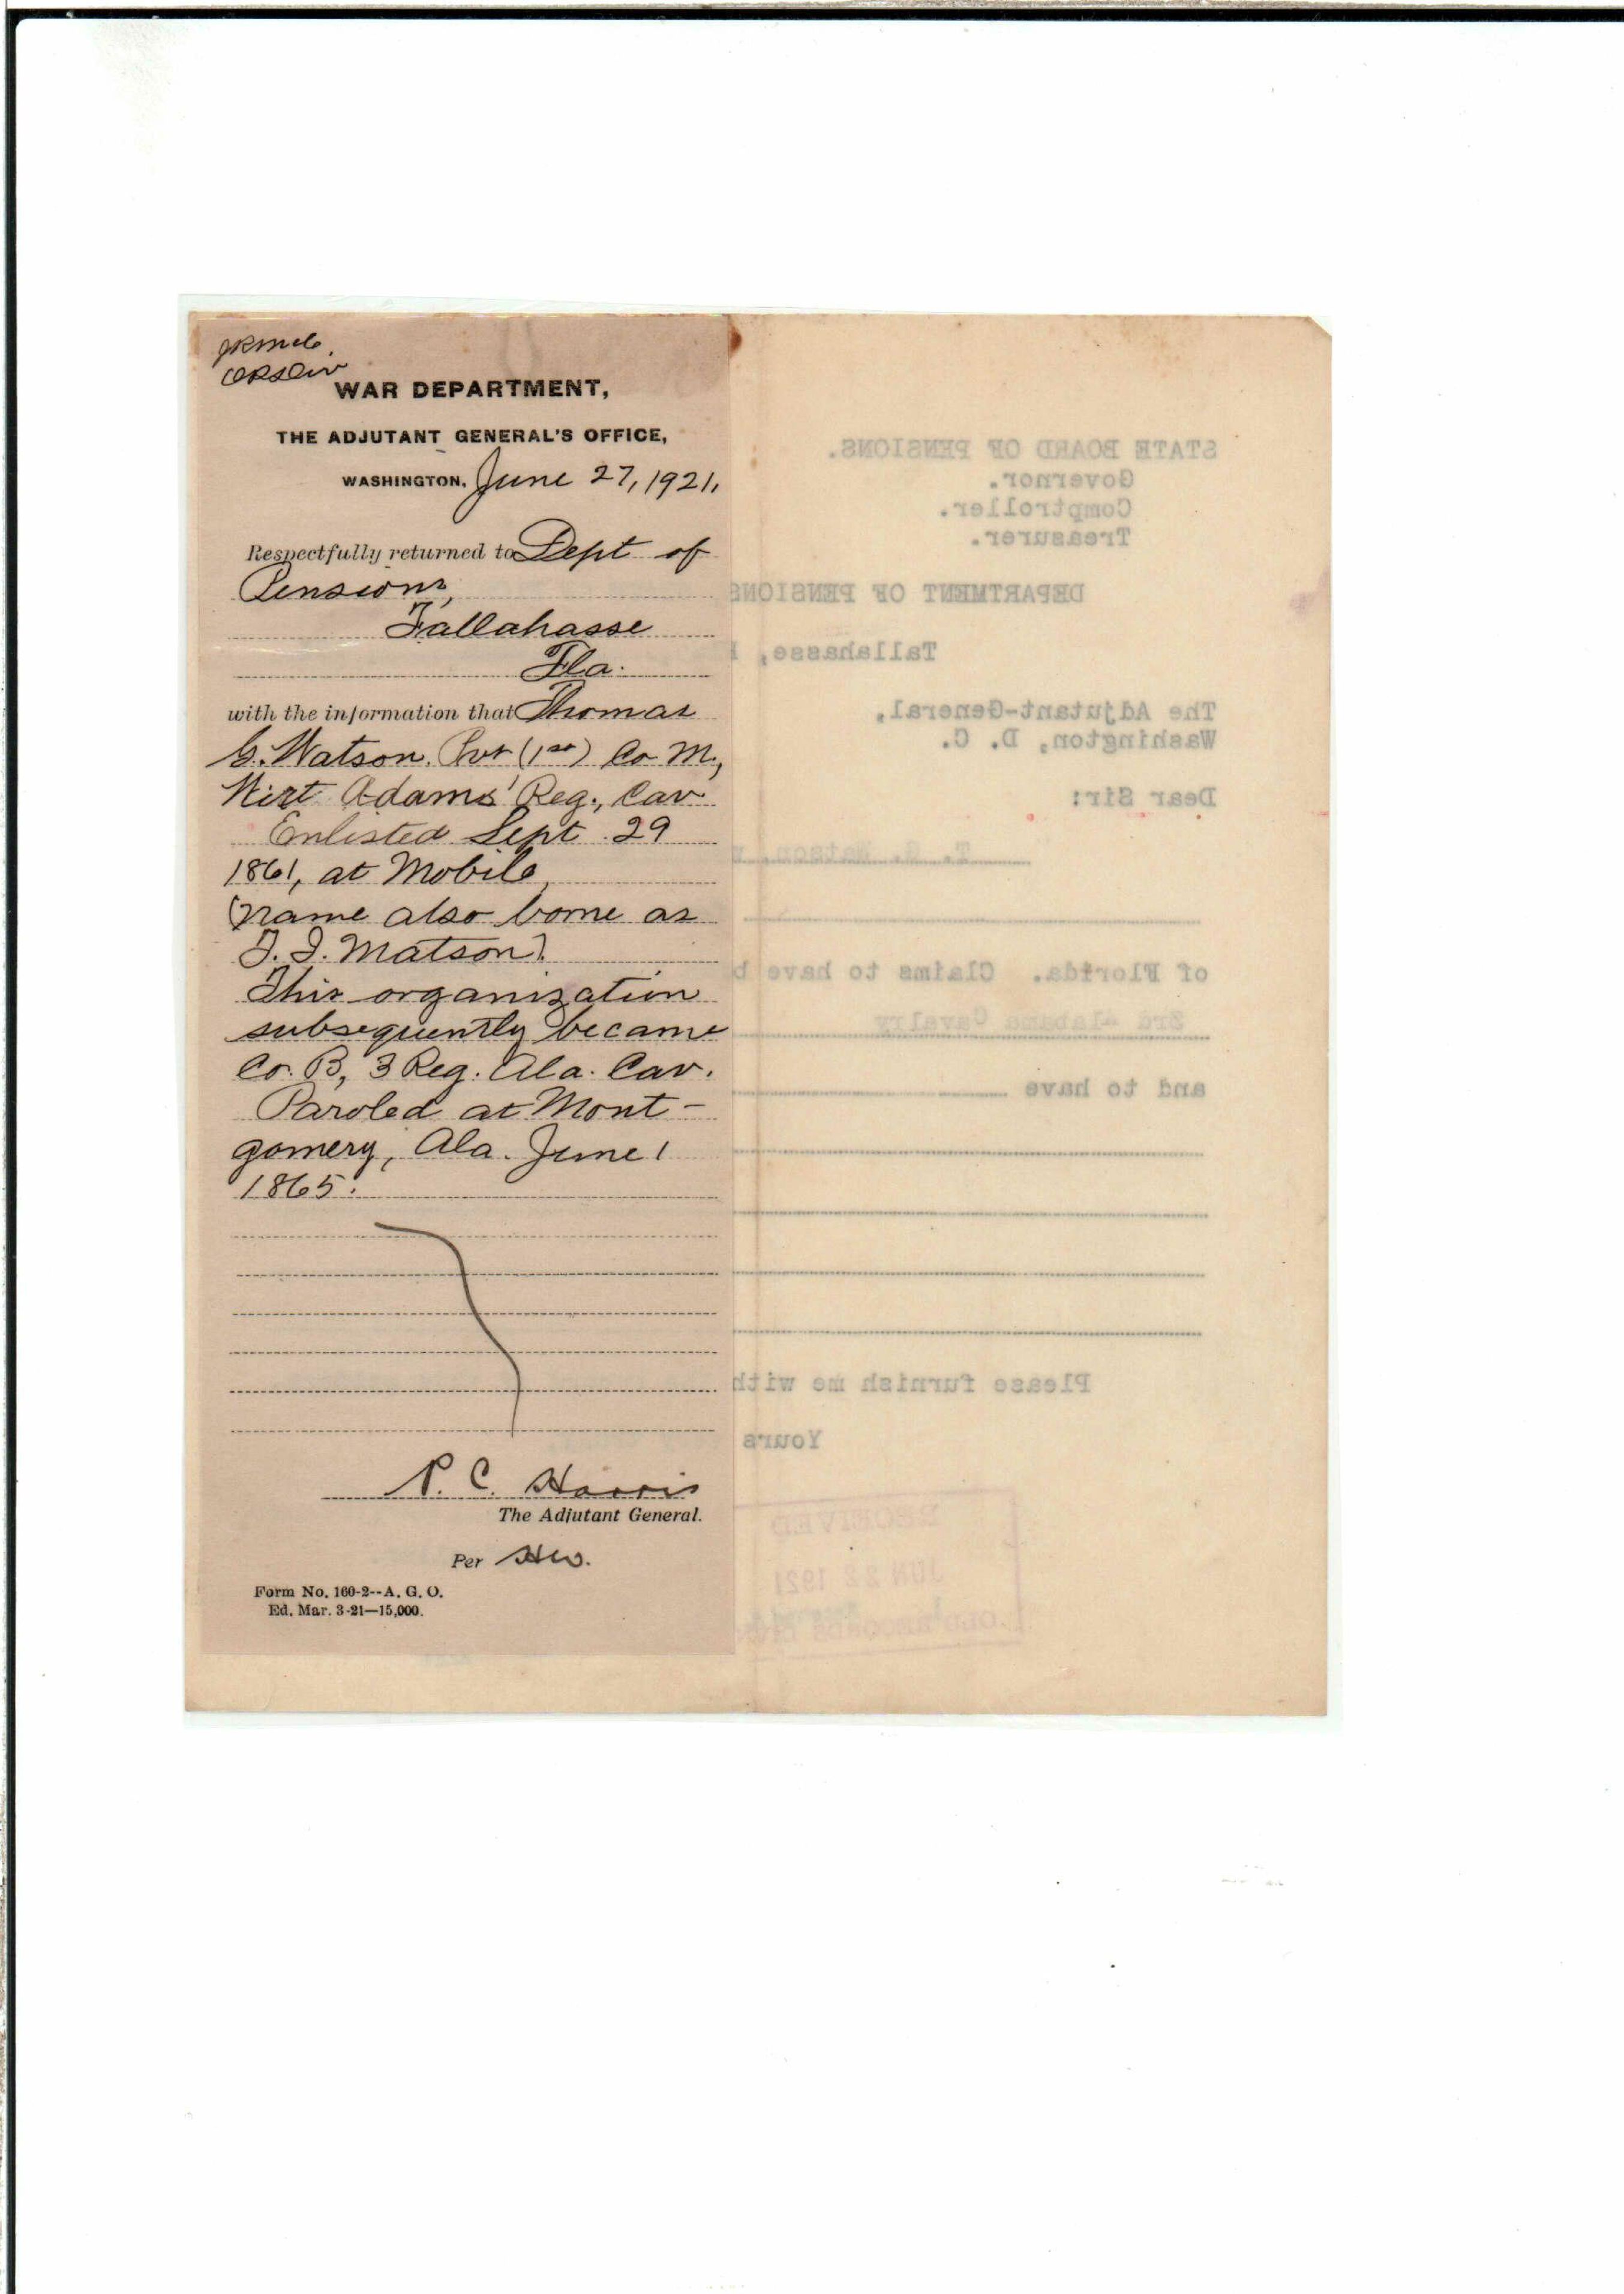 WAR DEPARTMENT,
THE ADJUTANT GENERAL'S OFFICE,
WASHINGTON, June 27, 1921,
Respectfully returned to Dept of
Pensions,
Tallahasse
Fla.
with the information that Thomas
G. Watson, Pvt (1st) Co M.,
Wirt Adams' Reg., Cav
Enlisted Sept 29
1861, at Mobile,
(Name also borne as
T. J. Matson).
This organization
subsequently became
Co. B, 3 Reg. Ala. Cav.
Paroled at Mont-
gomery, Ala. June 1
1865.
P. C. Harris
The Adjutant General.
Per HW.
Form No. 160-2--A. G. O.
Ed. Mar. 3-21—15,000.
STATE BOARD OF PENSIONS.
Governor.
Comptroller.
Treasurer.
DEPARTMENT OF PENSIONS
Tallahasse,
The Adjutant-General,
Washington, D. C.
Dear Sir:
T. G. Watson,
of Florida. Claims to have
3rd Alabama Cavalry
and to have
Please furnish me with
Yours
RECEIVED
JUN 22 1921
OLD RECORDS DIV